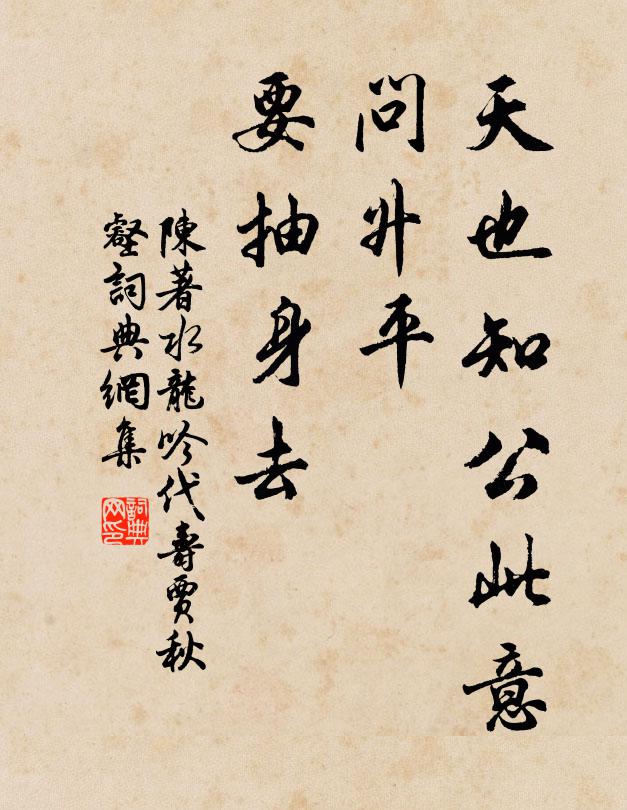 天也知公此意
問升平
要抽身去
陳著水龍吟代壽賈秋
壑詞典網集
詞典
网印